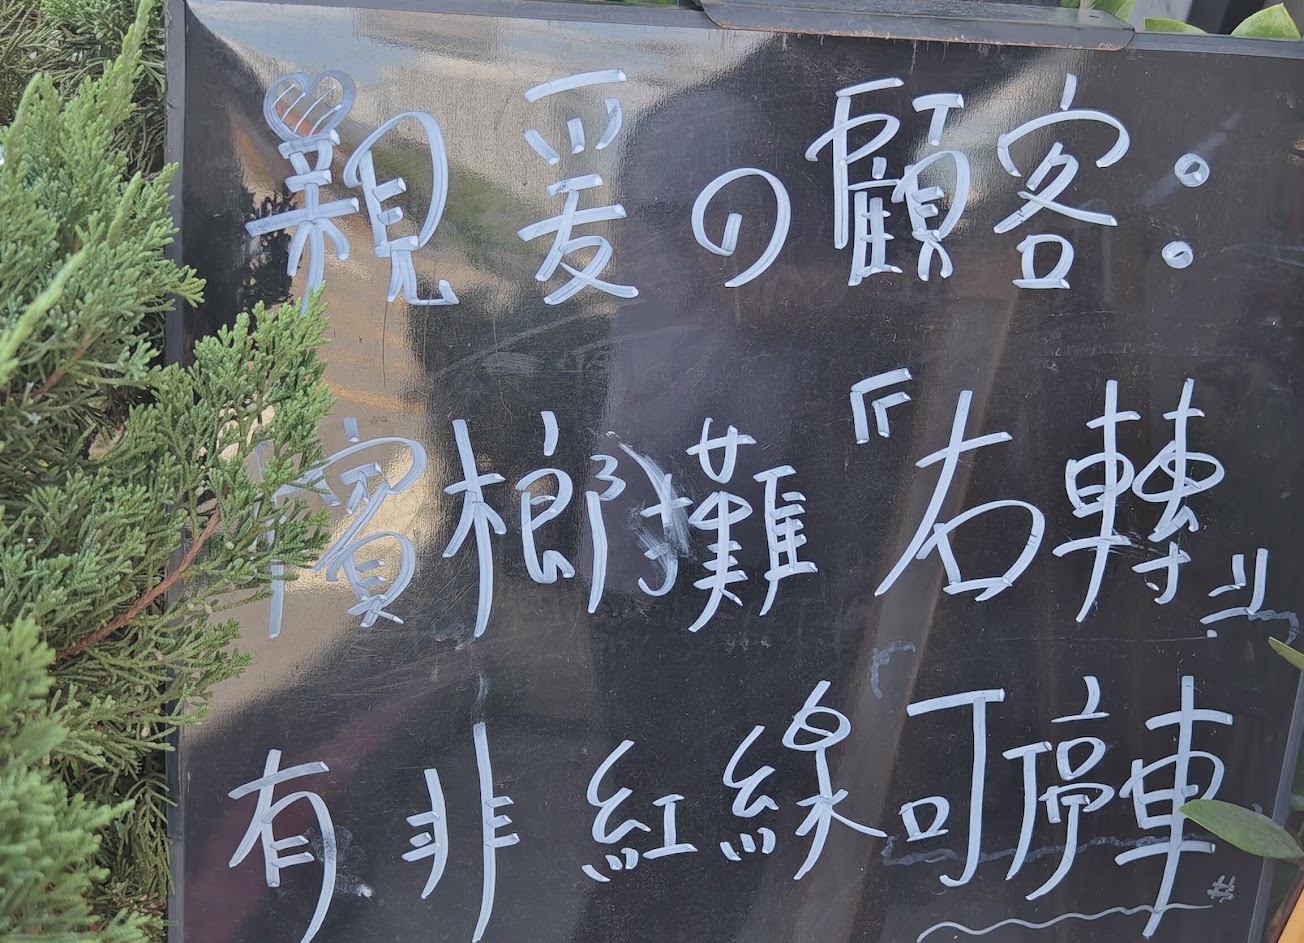 親爱の顧客：
檳榔攤『右轉』
有非紅線可停車